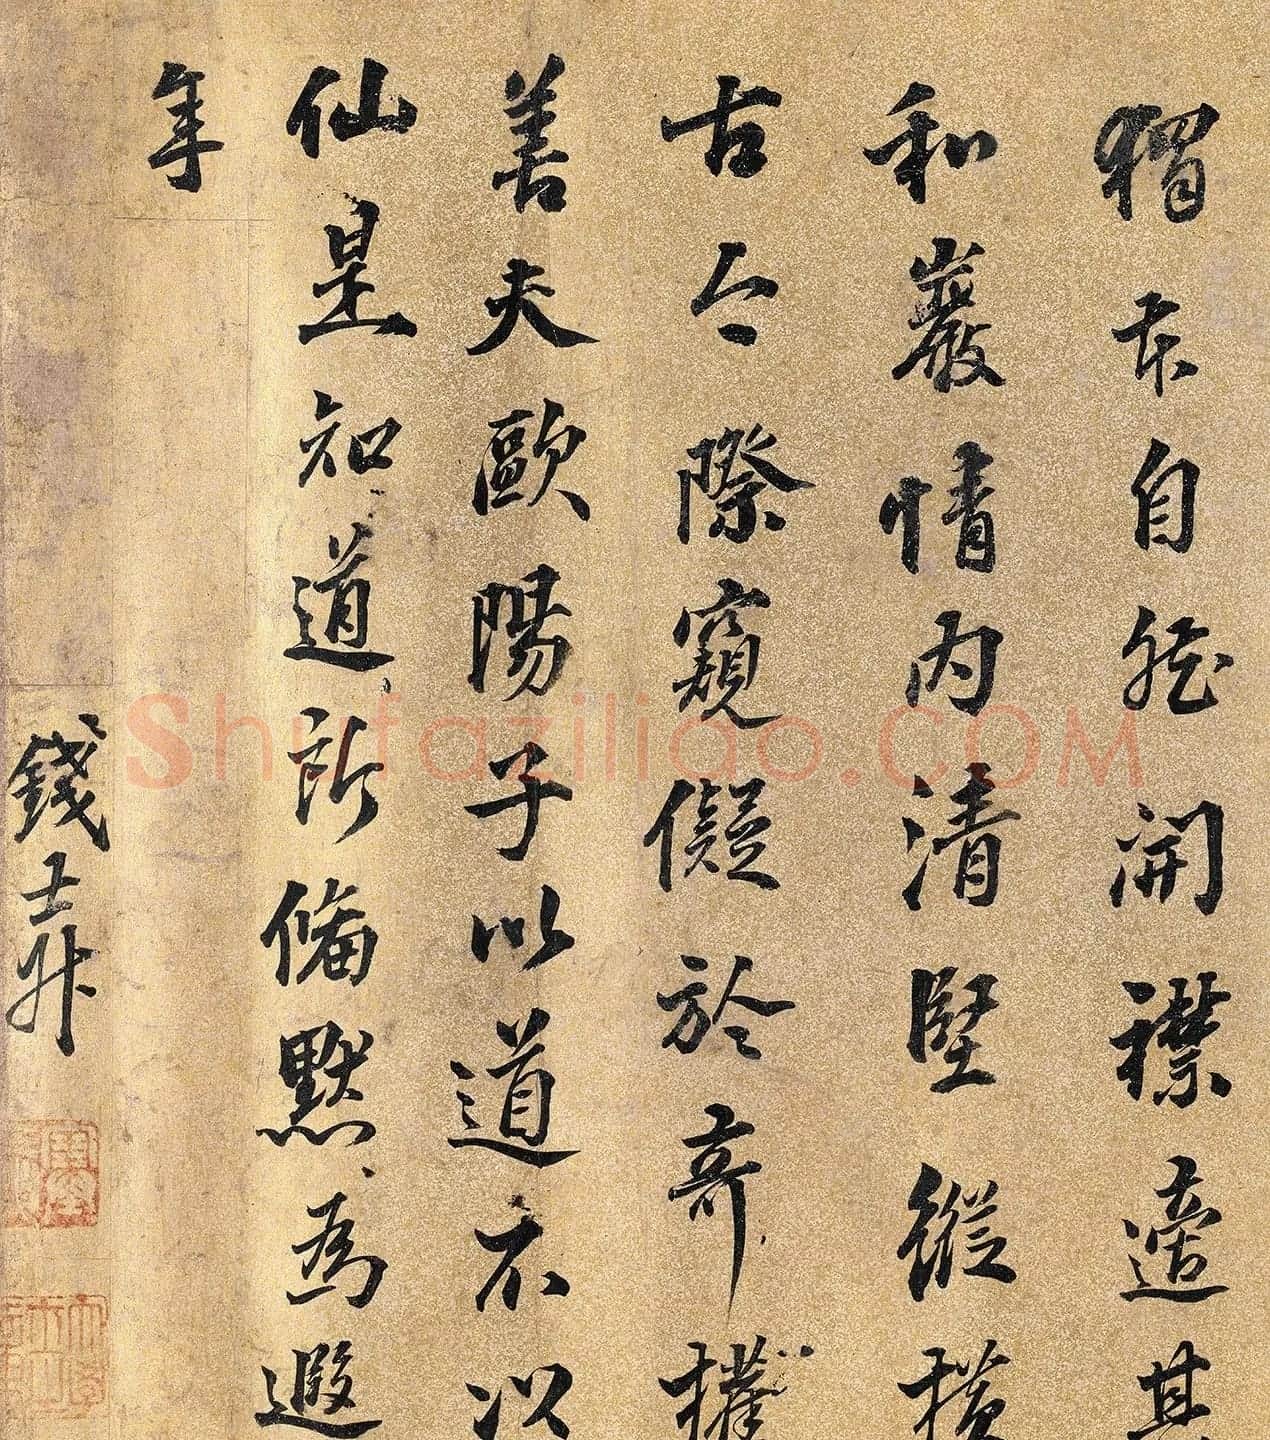 獨本自能開襟適其
和巖情內清堅縱橫
古今際窺儗於奇擢
善夫歐陽子以道不以
仙是知道所脩默為遐
年
錢士升
Shufaziliao.COM